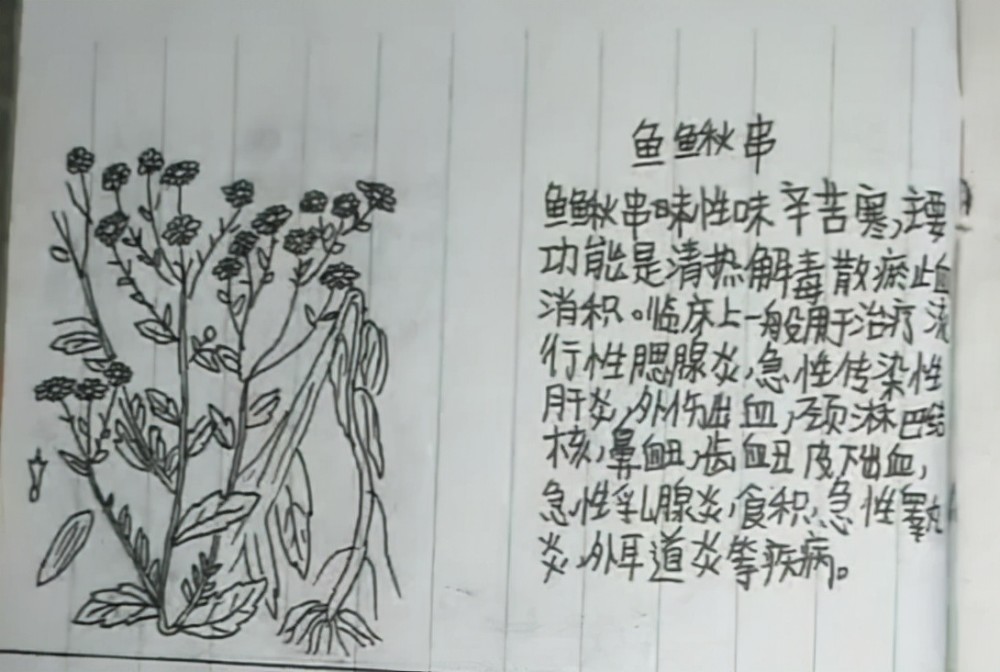 鱼鳅串
鱼鳅串味性味辛苦寒,主要
功能是清热解毒散瘀止血
消积。临床上一般用于治疗流
行性腮腺炎,急性传染性
肝炎,外伤出血,颈淋巴结
核,鼻衄,齿衄皮下出血,
急性乳腺炎,食积,急性睾丸
炎,外耳道炎等疾病。